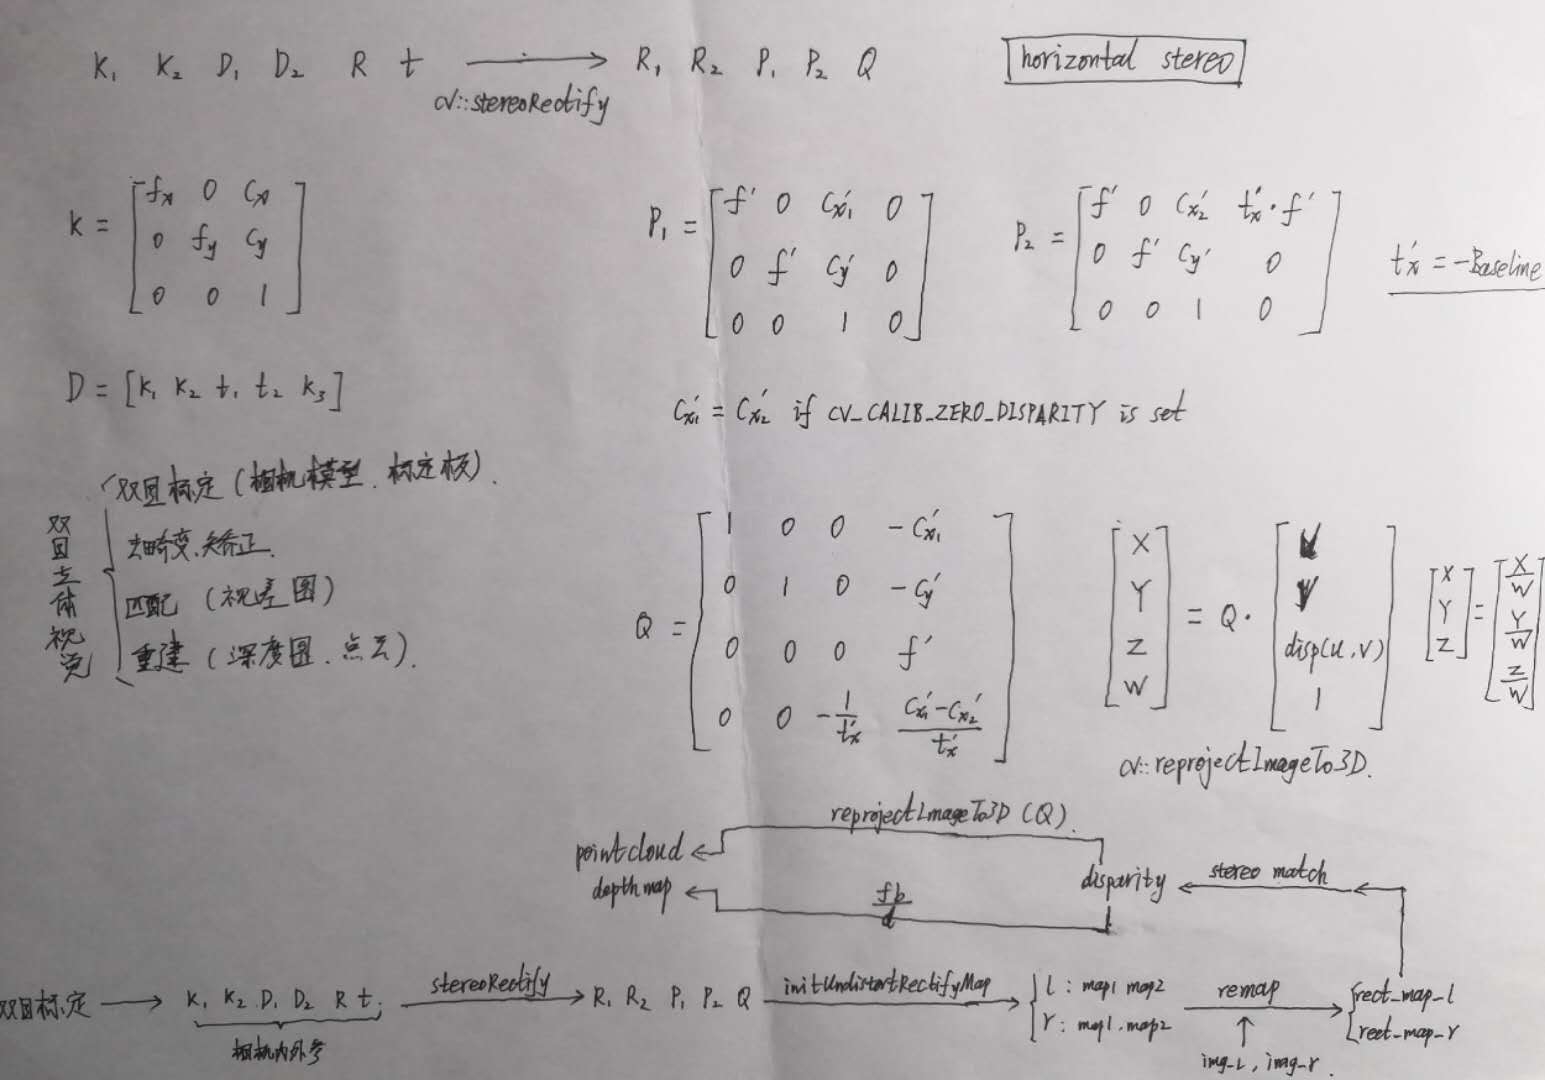 K₁ K₂ D₁ D₂ R t ⟶ R₁ R₂ P₁ P₂ Q
cv::stereoRectify
horizontal stereo
K = [fx 0 cx
0 fy cy
0 0 1]
P₁ = [f' 0 Cx₁' 0
0 f' Cy' 0
0 0 1 0]
P₂ = [f' 0 Cx₂' tx'·f'
0 f' Cy' 0
0 0 1 0]
tx' = -Baseline
D = [K₁ K₂ t₁ t₂ K₃]
Cx₁' = Cx₂' if CV_CALIB_ZERO_DISPARITY is set
双目立体视觉
双目标定(相机模型、标定板).
去畸变、矫正.
匹配 (视差图)
重建 (深度图、点云).
Q = [1 0 0 -Cx₁'
0 1 0 -Cy'
0 0 0 f'
0 0 -1/tx' (Cx₁'-Cx₂')/tx']
[X Y Z W] = Q · [u v disp(u,v) 1]
[X Y Z] = [X/W Y/W Z/W]
cv::reprojectImageTo3D.
reprojectImageTo3D (Q).
pointcloud ←
depth map ← fb/d
disparity ← stereo match ←
双目标定 ⟶ K₁ K₂ D₁ D₂ R t; stereoRectify ⟶ R₁ R₂ P₁ P₂ Q initUndistortRectifyMap ⟶ { l : map1 map2 remap ⟶ { rect_map_l
r : map1.map2 rect_map_r
相机内外参
img_L, img_r.